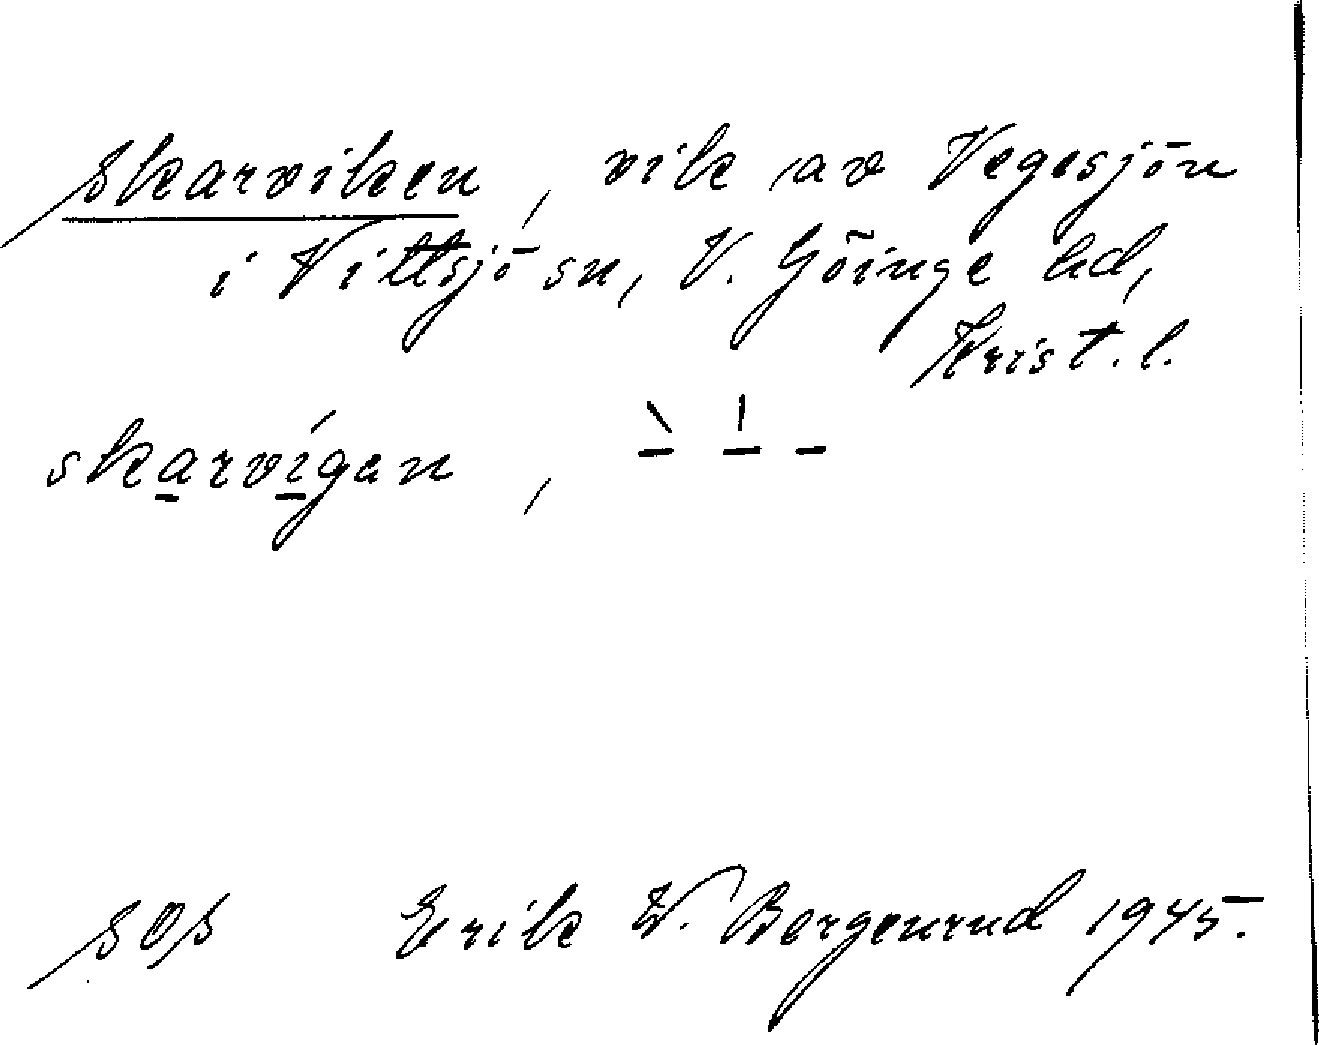 Skarviken, vik av Vegesjön
i Vittsjö sn, V. Göinge hd,
Krist. l.
skarvígan,
SOS Erik W. Bergenrud 1945.